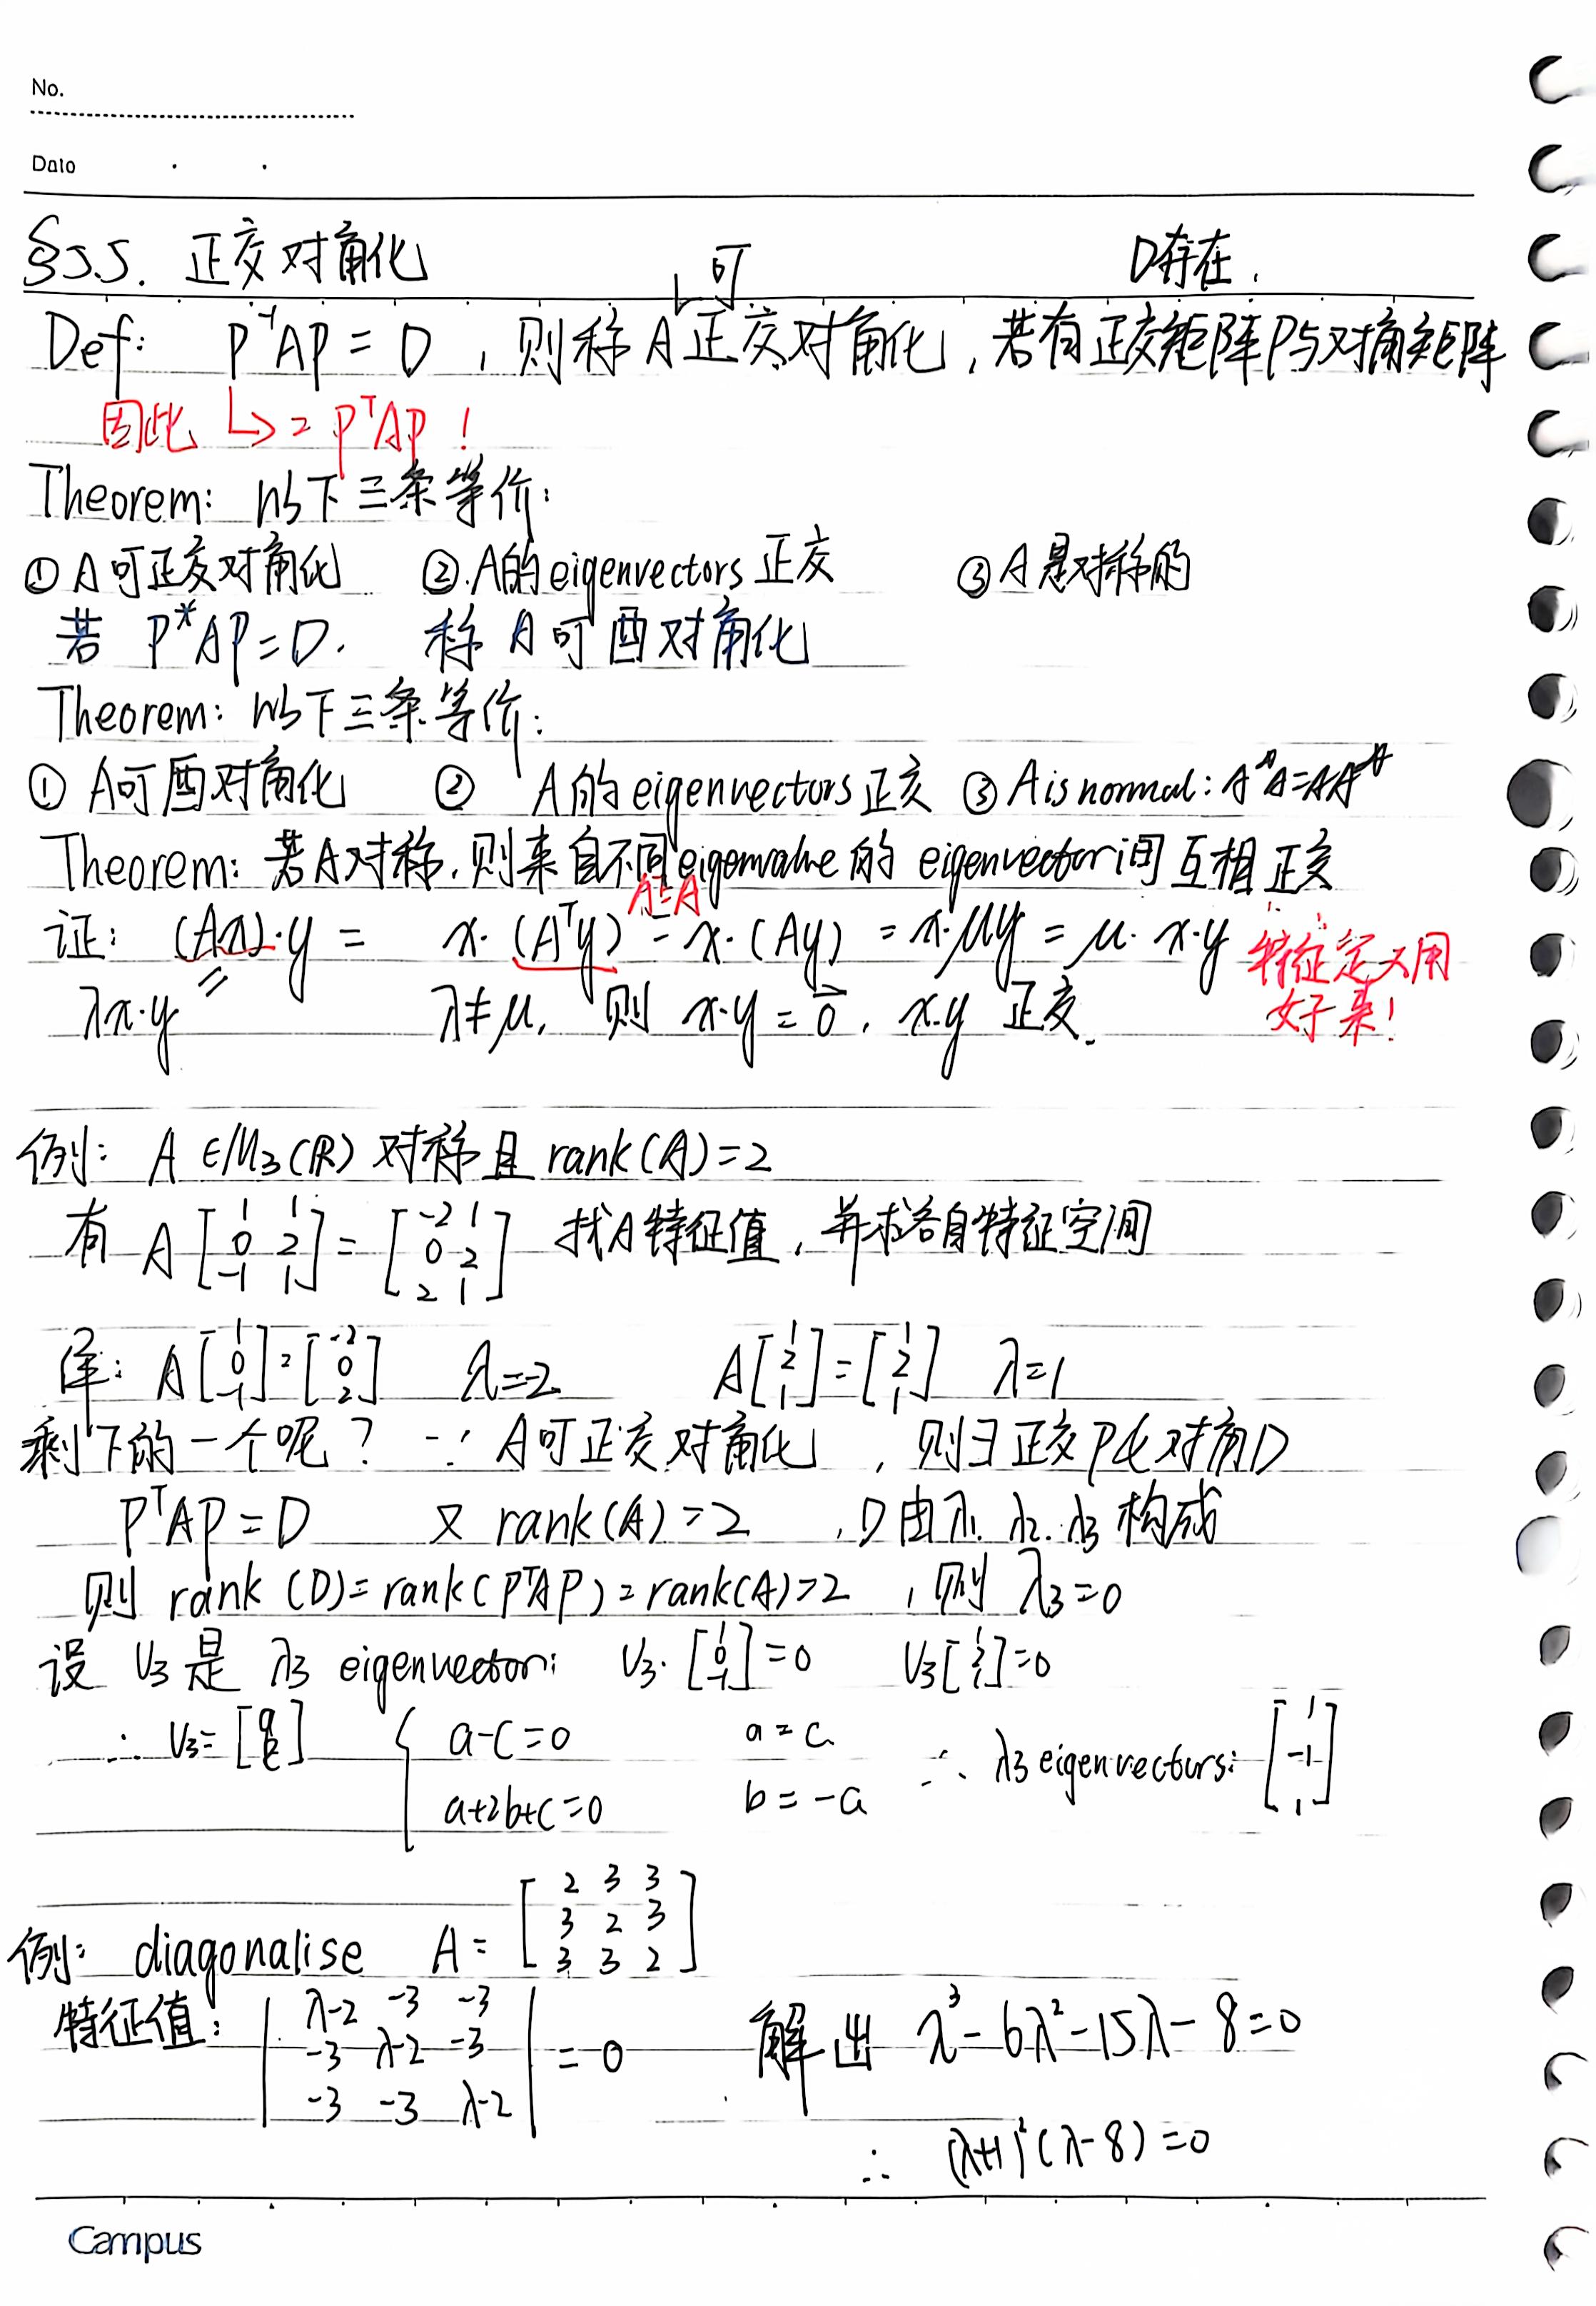 No.
Date
§5.5. 正交对角化 可 D存在.
Def: P⁻¹AP = D ,则称 A 正交对角化,若有正交矩阵P与对角矩阵
因此 ↳ = PᵀAP !
Theorem: 以下三条等价:
① A可正交对角化 ②.A的eigenvectors 正交 ③ A是对称的
若 P*AP=D. 称 A可酉对角化
Theorem: 以下三条等价:
① A可酉对角化 ② A的eigenvectors正交 ③ A is normal: A*A=AA*
Theorem: 若A对称,则来自不同eigenvalue的 eigenvector间互相正交
Aᵀ=A
证: (Ax)·y = x·(Aᵀy) = x·(Ay) = x·μy = μ·x·y 特征定义用
λx·y = λ≠μ, 则 x·y = 0⃗, x.y 正交. 好来!
例: A∈M₃(ℝ) 对称且 rank(A)=2
有 A [1 1; 0 2; -1 1] = [-2 1; 0 2; 2 1] 找A特征值,并求各自特征空间
解: A [1; 0; -1] = [-2; 0; 2] λ=-2 A [1; 2; 1] = [1; 2; 1] λ=1
剩下的一个呢? ∵ A可正交对角化 ,则∃正交P&对角D
PᵀAP = D 又 rank(A)=2 ,D由λ₁.λ₂.λ₃构成
则 rank(D)=rank(PᵀAP)=rank(A)=2 ,则 λ₃=0
设 V₃是 λ₃ eigenvector: V₃·[1; 0; -1]=0 V₃[1; 2; 1]=0
∴ V₃=[a; b; c] { a-c=0 a+2b+c=0 a=c b=-a ∴ λ₃ eigenvectors: [1; -1; 1]
例: diagonalise A= [2 3 3; 3 2 3; 3 3 2]
特征值: |λ-2 -3 -3; -3 λ-2 -3; -3 -3 λ-2| = 0 解出 λ³-6λ²-15λ-8=0
∴ (λ+1)²(λ-8)=0
Campus